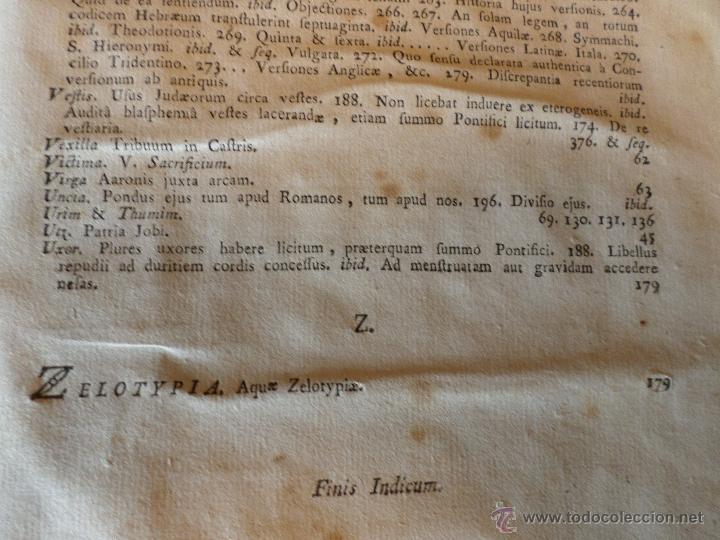 Quid de ea sentiendum. ibid. Objectiones. 266. 267. An solam legem, an totum
codicem Hebræum transtulerint septuaginta. ibid. Versiones Aquilæ. 268. Symmachi.
ibid. Theodotionis. 269. Quinta & sexta. ibid. Versiones Latinæ. Itala. 270.
S. Hieronymi. ibid. & seq. Vulgata. 272. Quo sensu declarata authentica à Con-
cilio Tridentino. 273... Versiones Anglicæ, &c. 279. Discrepantia recentiorum
Versionum ab antiquis. ibid.
Vestis. Usus Judæorum circa vestes. 188. Non licebat induere ex eterogeneis. ibid.
Auditâ blasphemiâ vestes lacerandæ, etiam summo Pontifici licitum. 174. De re
vestiaria. 376. & seq.
Vexilla Tribuum in Castris. 62
Victima. V. Sacrificium.
Virga Aaronis juxta arcam. 63
Uncia. Pondus ejus tum apud Romanos, tum apud nos. 196. Divisio ejus. ibid.
Urim & Thumim. 69. 130. 131. 136
Utz. Patria Jobi. 45
Uxor. Plures uxores habere licitum, præterquam summo Pontifici. 188. Libellus
repudii ad duritiem cordis concessus. ibid. Ad menstruatam aut gravidam accedere
nefas. 179
Z.
ZELOTYPIA. Aquæ Zelotypiæ. 179
Finis Indicum.
www.todocoleccion.net